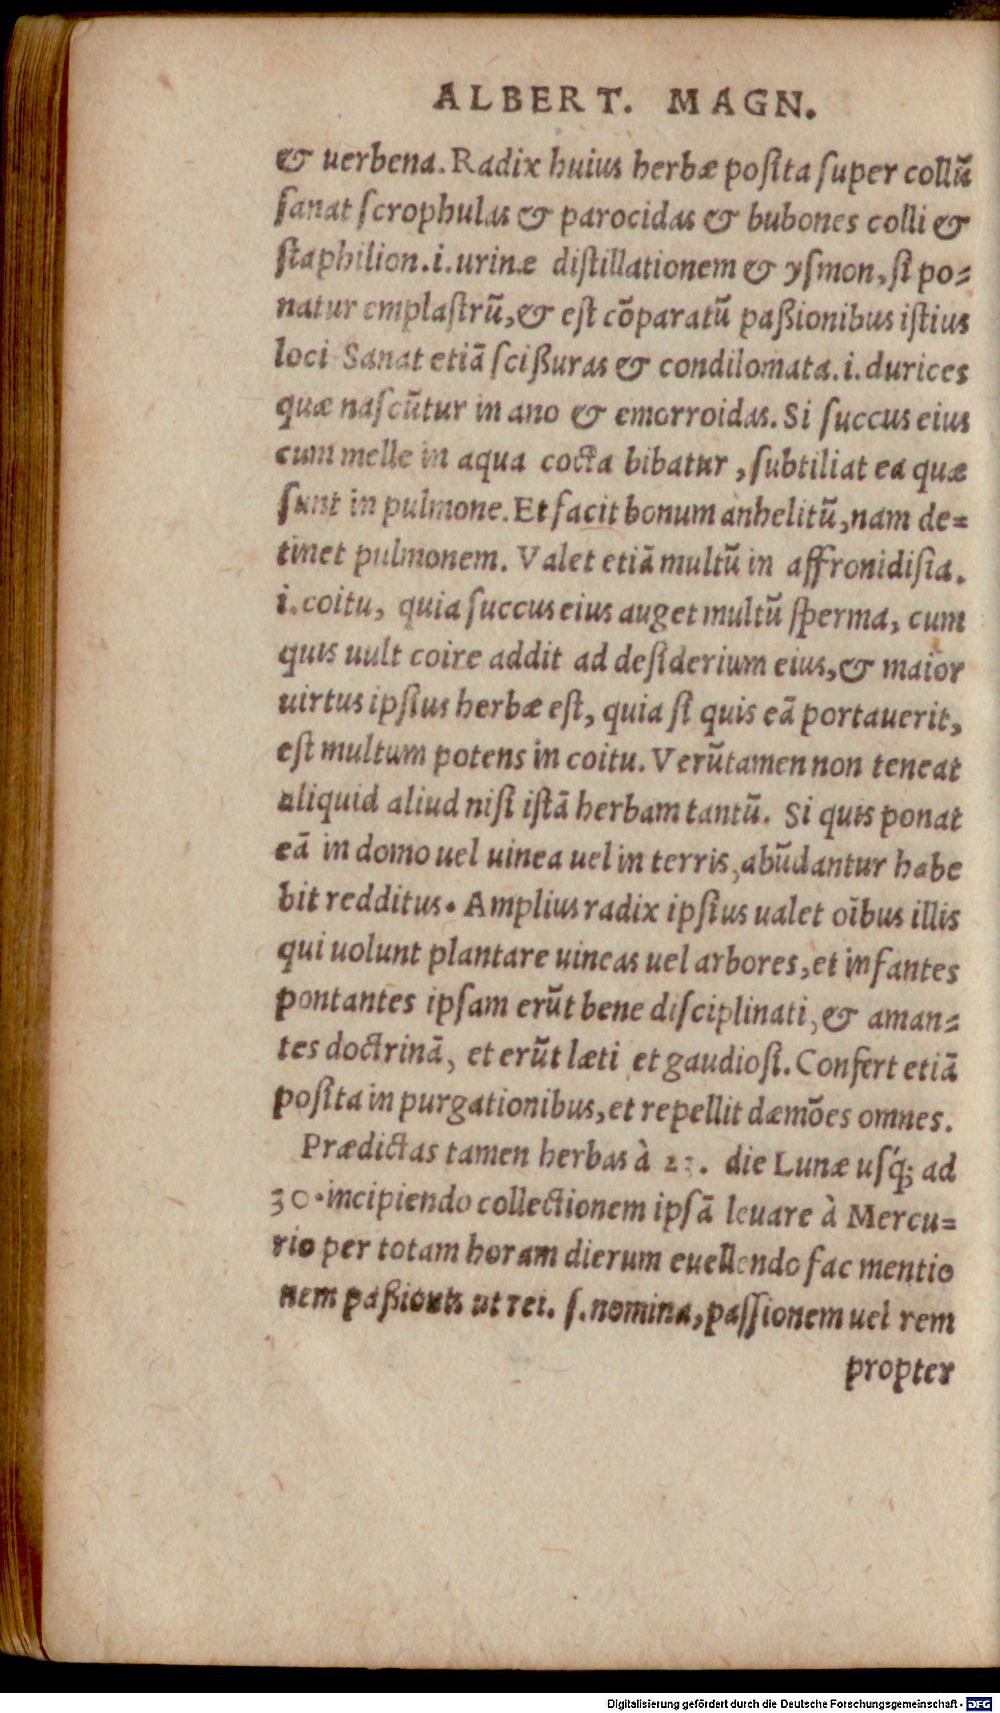 ALBERT. MAGN.
& uerbena. Radix huius herbæ poſita ſuper collũ
ſanat ſcrophulas & parocidas & bubones colli &
ſtaphilion. i. urinæ diſtillationem & yſmon, ſi po=
natur emplaſtrũ, & eſt cõparatũ paßionibus iſtius
loci Sanat etiã ſcißuras & condilomata. i. durices
quæ naſcũtur in ano & emorroidas. Si ſuccus eius
cum melle in aqua cocta bibatur, ſubtiliat ea quæ
ſunt in pulmone. Et facit bonum anhelitũ, nam de=
tinet pulmonem. Valet etiã multũ in affronidiſia.
i. coitu, quia ſuccus eius auget multũ ſperma, cum
quis uult coire addit ad deſiderium eius, & maior
uirtus ipſius herbæ eſt, quia ſi quis eã portauerit,
eſt multum potens in coitu. Verũtamen non teneat
aliquid aliud niſi iſtã herbam tantũ. Si quis ponat
eã in domo uel uinea uel in terris, abũdantur habe
bit redditus. Amplius radix ipſius ualet oĩbus illis
qui uolunt plantare uineas uel arbores, et infantes
pontantes ipſam erũt bene diſciplinati, & aman=
tes doctrinã, et erũt læti et gaudioſi. Confert etiã
poſita in purgationibus, et repellit dæmões omnes.
Prædictas tamen herbas à 23. die Lunæ uſq; ad
30. incipiendo collectionem ipſã leuare à Mercu=
rio per totam horam dierum euellendo fac mentio
nem paßionis ut rei. ſ. nomina, paſſionem uel rem
propter
Digitalisierung gefördert durch die Deutsche Forschungsgemeinschaft - DFG